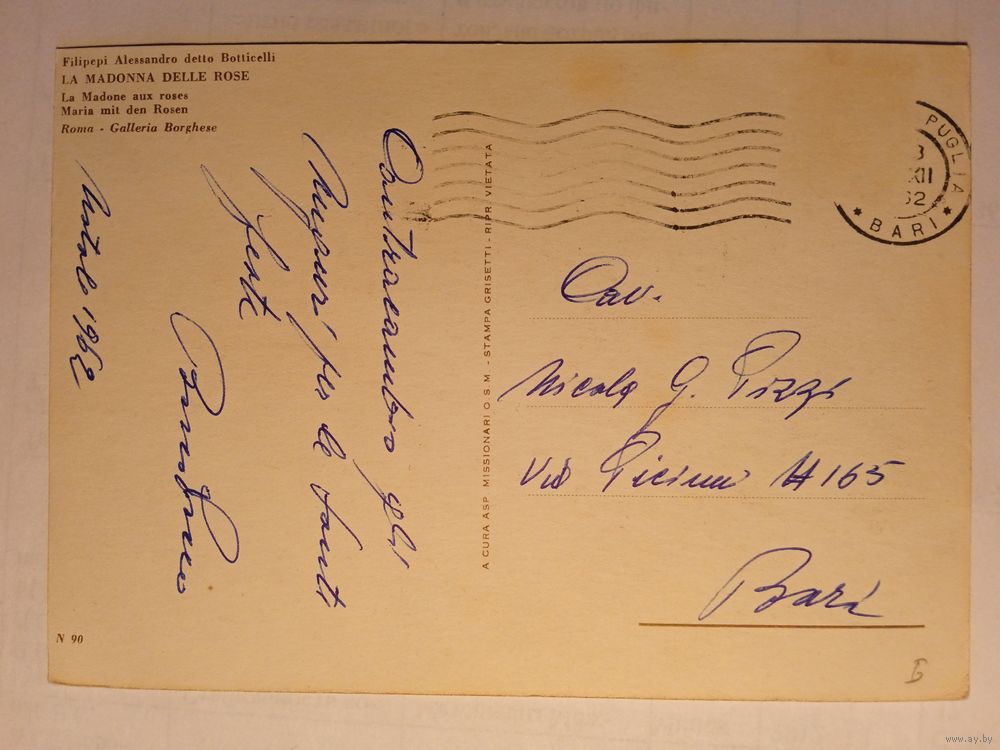 Filipepi Alessandro detto Botticelli
LA MADONNA DELLE ROSE
La Madone aux roses
Maria mit den Rosen
Roma - Galleria Borghese
Contracambio gli
Auguri per le Sante
feste
Natale 1962
N 90
A CURA ASP MISSIONARI O.S.M. - STAMPA GRISETTI - RIPR. VIETATA
PUGLIA
XII
62
* BARI *
Cav.
Nicola G. Pizzi
Via Picinni 165
Bari
www.ay.by